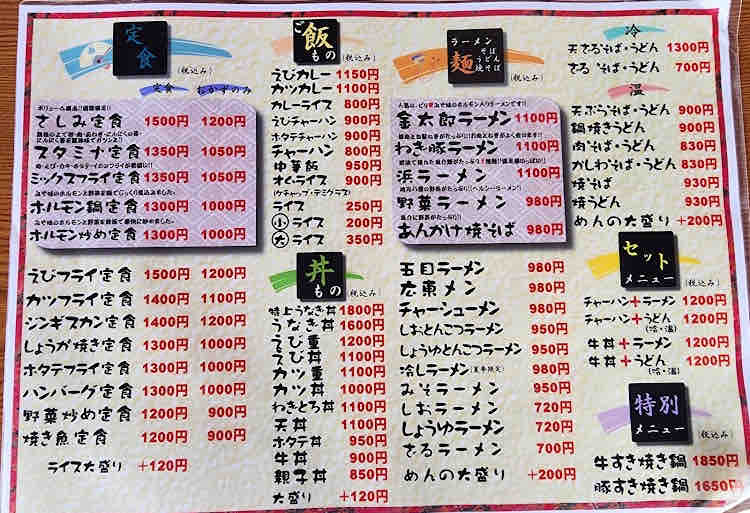 定食
(税込み)
定食 おかずのみ
さしみ定食 1500円 1200円
スタミナ定食 1350円 1050円
ミックスフライ定食 1350円 1050円
みや味のホルモンと野菜を鍋でじっくり煮込みました。
ホルモン鍋定食 1300円 1000円
みや味のホルモンと野菜を鉄板で豪快に炒めました。
ホルモン炒め定食 1300円 1000円
えびフライ定食 1500円 1200円
カツフライ定食 1400円 1100円
ジンギスカン定食 1400円 1200円
しょうが焼き定食 1300円 1000円
ホタテフライ定食 1300円 1000円
ハンバーグ定食 1300円 1000円
野菜炒め定食 1200円 900円
焼き魚定食 1200円 900円
ライス大盛り +120円
ご飯もの
(税込み)
えびカレー 1150円
カツカレー 1100円
カレーライス 800円
えびチャーハン 900円
ホタテチャーハン 900円
チャーハン 800円
中華飯 950円
オムライス 950円
(ケチャップ・デミグラス)
ライス 250円
小ライス 200円
大ライス 350円
丼もの
(税込み)
特上うなぎ丼 1800円
うなぎ丼 1600円
えび重 1200円
えび丼 1100円
カツ重 1100円
カツ丼 1000円
わきとろ丼 1100円
天丼 1100円
ホタテ丼 950円
牛丼 900円
親子丼 850円
大盛り +120円
ラーメン
麺
そば
うどん
焼そば
(税込み)
金太郎ラーメン 1100円
わき豚ラーメン 1100円
浜ラーメン 1100円
野菜ラーメン 980円
あんかけ焼そば 980円
五目ラーメン 980円
広東メン 980円
チャーシューメン 980円
しおとんこつラーメン 950円
しょうゆとんこつラーメン 950円
冷しラーメン(夏季限定) 980円
みそラーメン 950円
しおラーメン 720円
しょうゆラーメン 720円
ざるラーメン 700円
めんの大盛り +200円
冷
天ざるそば・うどん 1300円
ざるそば・うどん 700円
温
天ぷらそば・うどん 900円
鍋焼きうどん 900円
肉そば・うどん 830円
かしわそば・うどん 830円
焼そば 930円
焼うどん 930円
めんの大盛り +200円
セットメニュー
(税込み)
チャーハン+ラーメン 1200円
チャーハン+うどん 1200円
(冷・温)
牛丼+ラーメン 1200円
牛丼+うどん 1200円
(冷・温)
特別メニュー
(税込み)
牛すき焼き鍋 1850円
豚すき焼き鍋 1650円